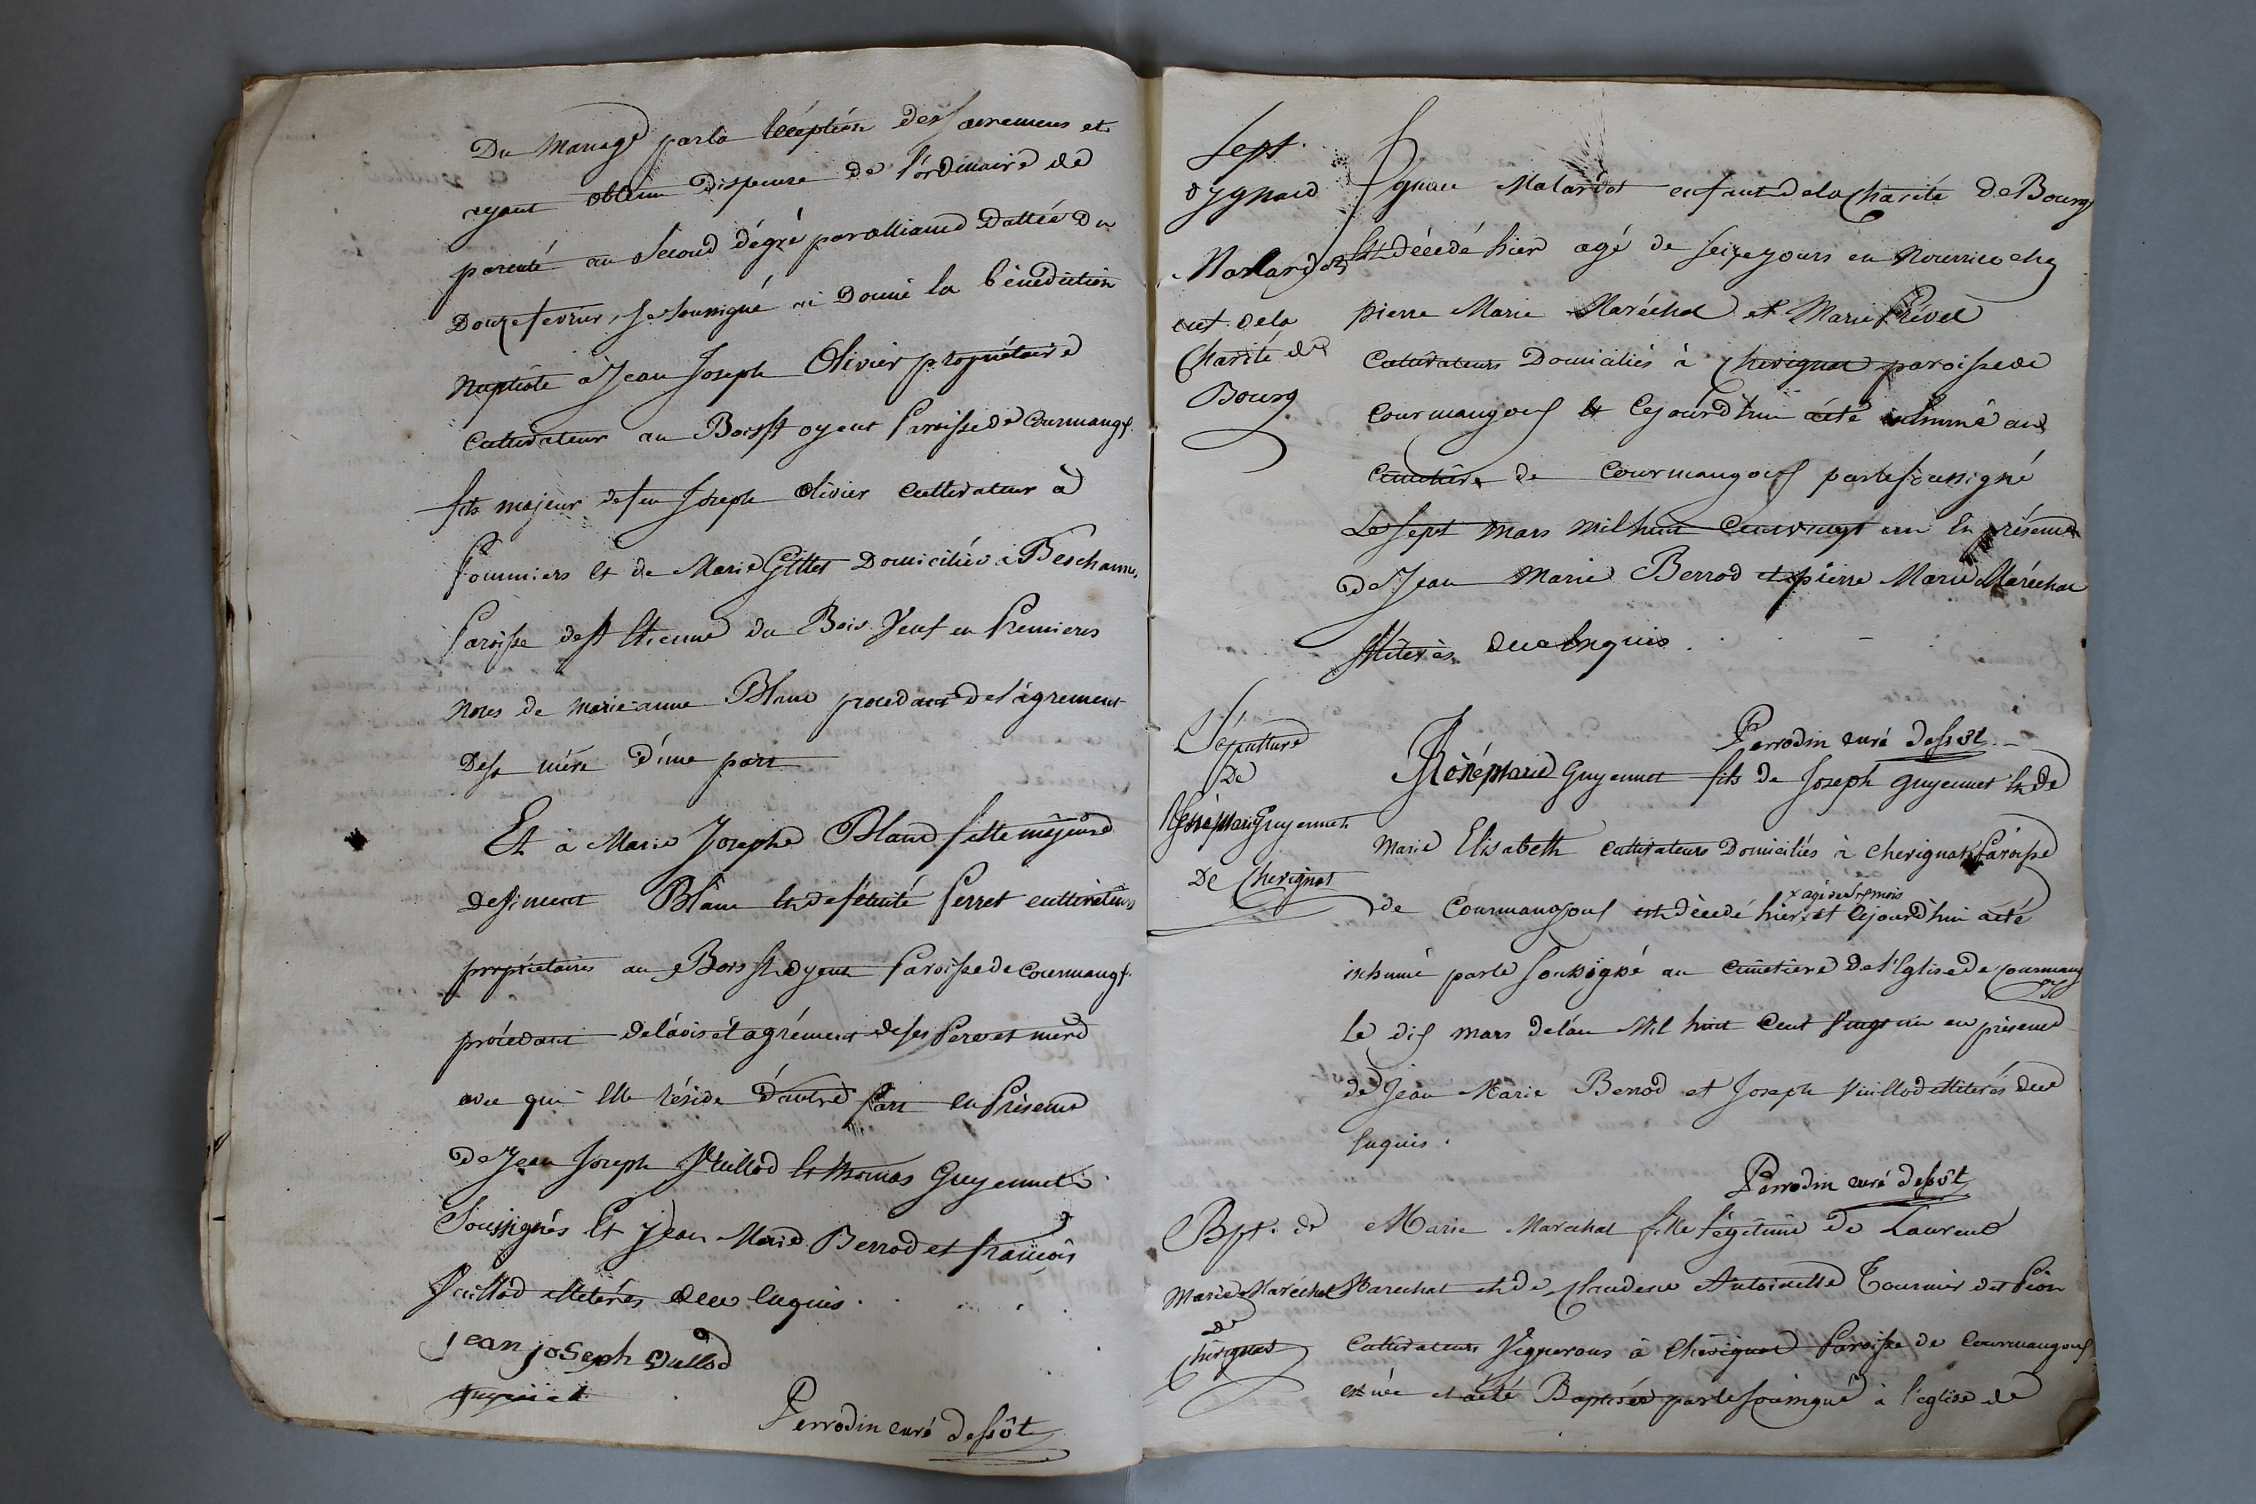 Du Mariage par la réception des sacremens et
ayant obtenu dispense de l'ordinaire de
parenté au second dégré par alliance Dattée Du
Douze fevrier, je soussigné ai Donné la bénédiction
Nuptiale à Jean Joseph Olivier propriétaire
Cultivateur au Bois St oyent Paroisse de Courmangx.
fils majeur de feu Joseph Olivier Cultivateur à
Pommiers et de Marie Gillet Domiciliée à Beschanne,
Paroisse de St Etienne du Bois Veuf en Premieres
Noces de Marie anne Blanc procedant de l'agrement
De sa mére d'une part
Et à Marie Josephe Blanc fille majeure
De Vincent Blanc et de félicité Perret cultivateurs
propriétaires au Bois St oyent Paroisse de Courmangx.
procedant de l'avis et agrément de ses Pere et mere
avec qui elle réside D'autre Part en Présence
De Jean Joseph Vuillod et thomas Guyennet
Soussignés Et Jean Marie Berrod et françois
Vuillod illiterés de ce enquis.
jean joseph Vullod
guyennet
Perrodin curé desst
Sept.
D'ygnace
Malardot
enf. de la
Charité de
Bourg
Ygnace Malardot enfant de la Charité De Bourg
Est Décedé hier agé de seize jours en Nourrice chez
pierre Marie Maréchal et Marie Prévet
Cultivateurs Domiciliés à Chevignat paroisse de
Courmangoux Et Cejourd'hui a été inhumé au
Cimetière de Courmangoux par le soussigné
Le sept Mars Mil huit Cent vingt un En présence
De Jean Marie Berrod et pierre Marie Maréchal
Illiterès de ce Enquis.
Perrodin curé desst
Sépulture
De
Réné Marie Guyennet
De Chevignat
Réné Marie Guyennet fils de Joseph Guyennet et de
Marie Elisabeth Cultivateurs Domiciliés à Chevignat Paroisse
x agé de mois
de Courmangoux est décedé hier, x et Cejourd'hui a été
inhumé par le Soussigné au cimetière de l'Eglise de Courmang
oux
Le dix mars de l'an Mil huit Cent Vingt un en présence
de Jean Marie Berrod et Joseph Vuillod illiterés de ce
Enquis.
Perrodin curé desst
Bpt. de
Marie Maréchal
de
Chevignat
Marie Marechal fille légitime de Laurent
Marechal et de Claudine Antoinette Tournier dit Péon
Cultivateurs Vignerons à Chevignat Paroisse de Courmangoux
est née et a été Baptisée par le soussigné à l'eglise de